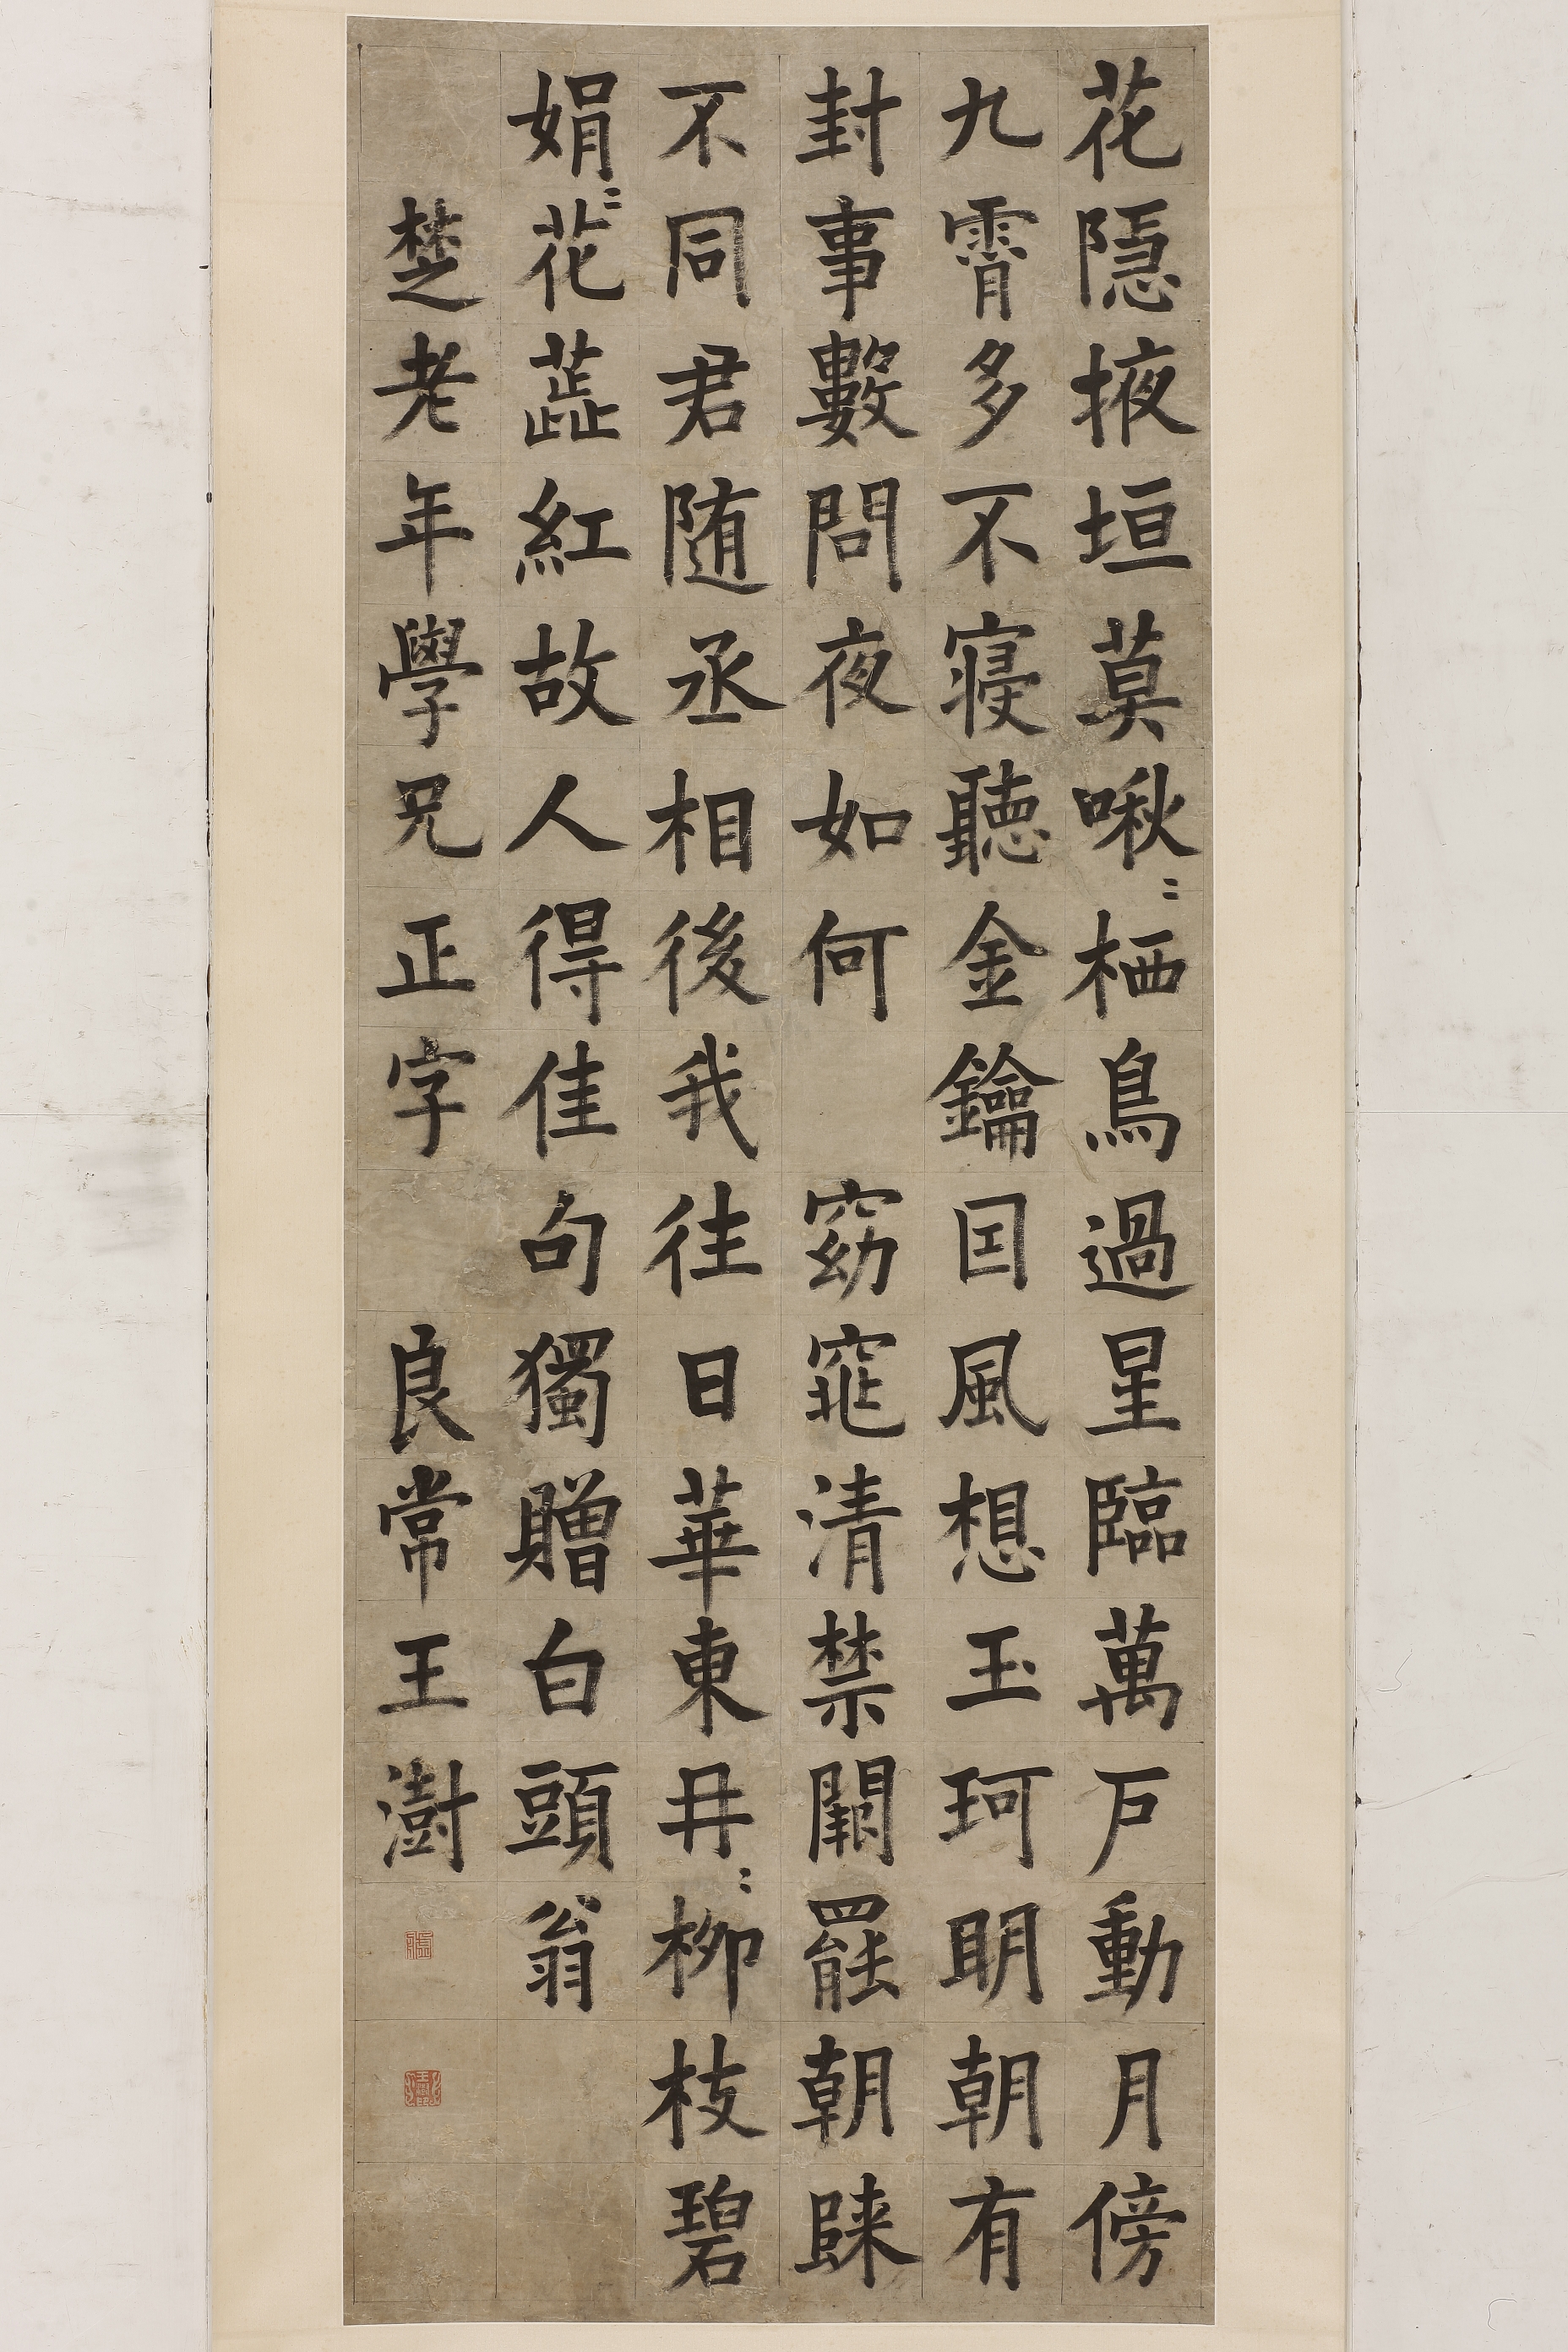 花隱掖垣莫啾〻栖鳥過星臨萬戶動月傍
九霄多不寢聽金鑰囙風想玉珂明朝有
封事數問夜如何 窈窕清禁闥罷朝歸
不同君随丞相後我往日華東冉〻柳枝碧
娟〻花蕋紅故人得佳句獨贈白頭翁
楚老年學兄正字 良常王澍